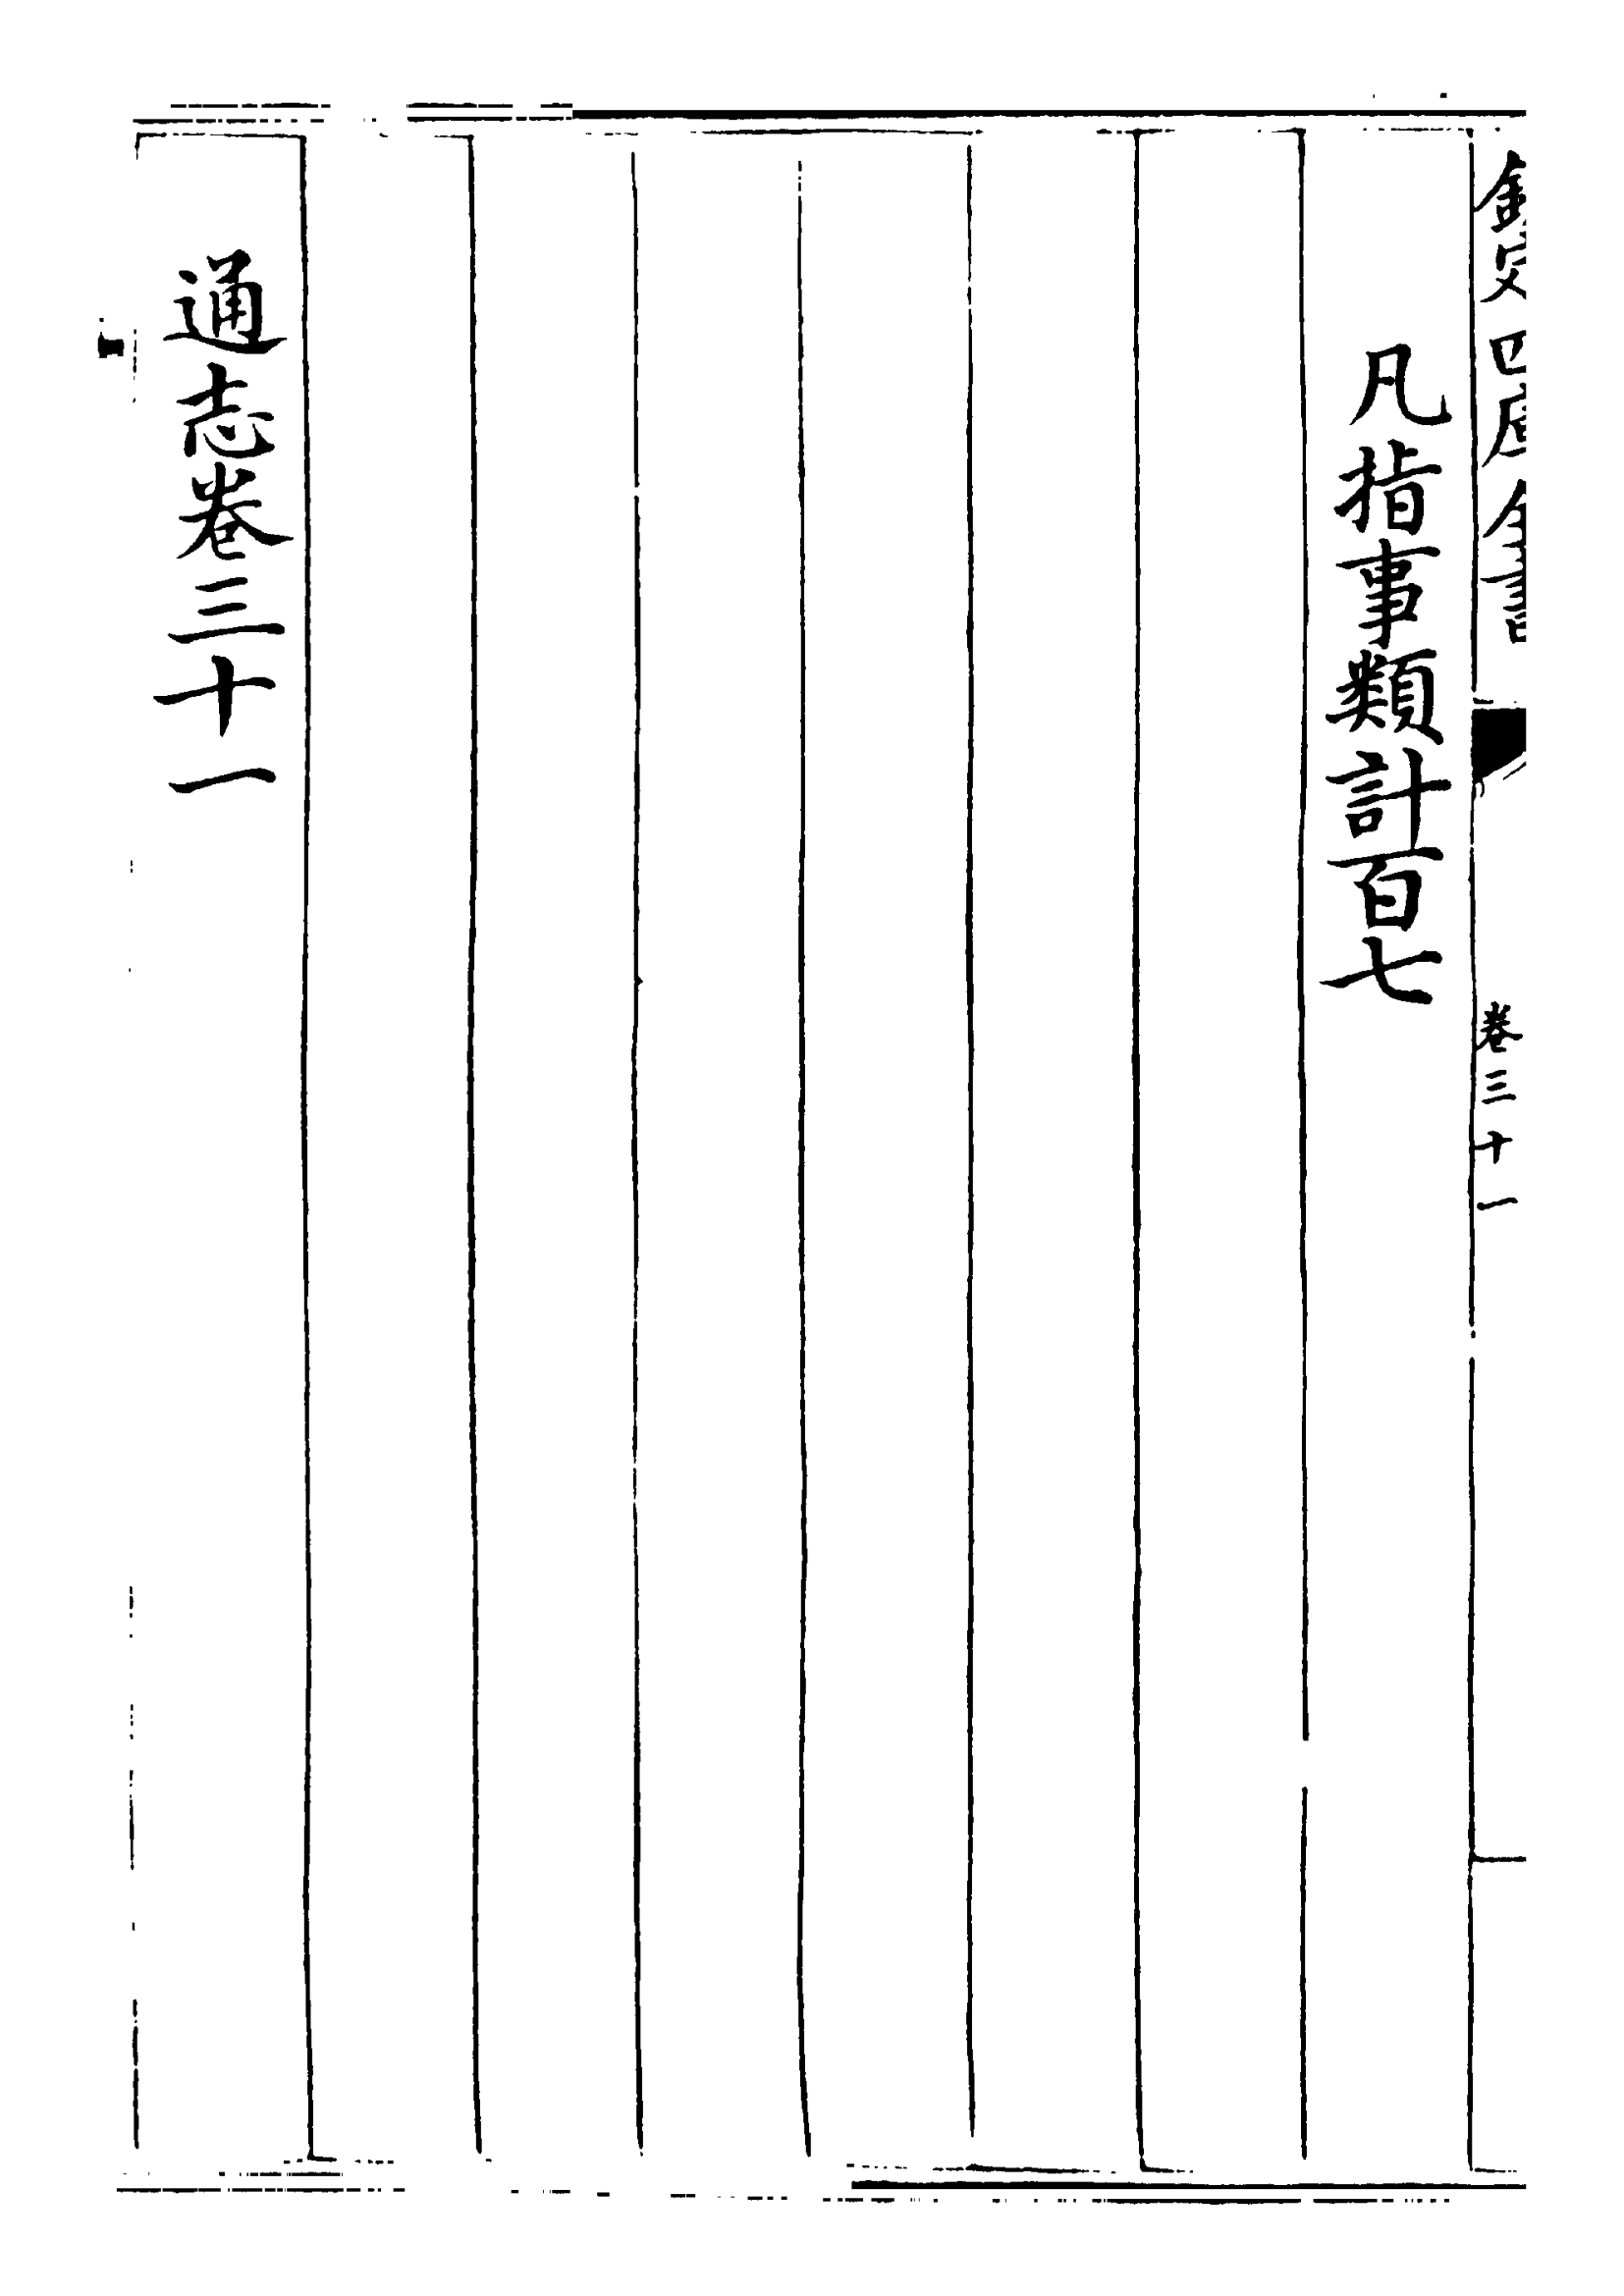 欽定四庫全書
卷三十一
凡指事類計百七
通志卷三十一